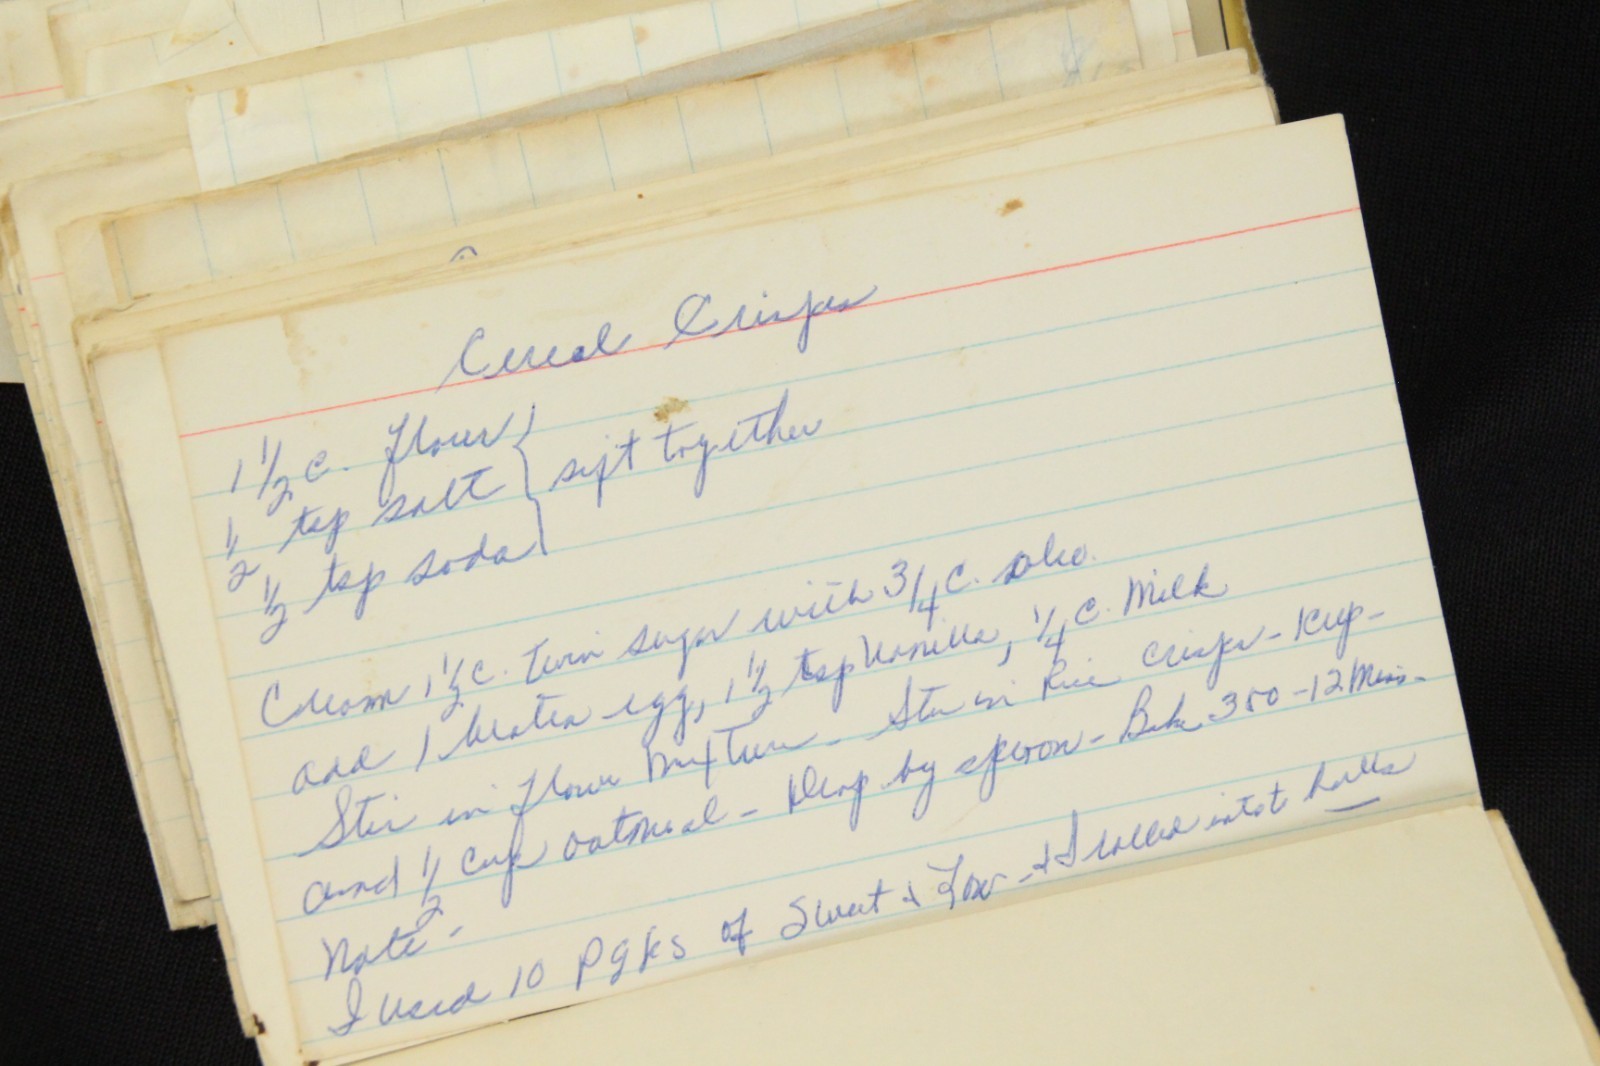 Cereal Crisps
1 1/2 c. flour
1/2 tsp salt } sift together
1/2 tsp soda
Cream 1 1/2 c. Twin sugar with 3/4 c. oleo.
add 1 beaten egg, 1 1/2 tsp Vanilla, 1/4 c. Milk
Stir in flour mixture - Stir in Rice crisps - 1 cup -
and 1/2 cup oatmeal - Drop by spoon - Bake 350 - 12 Mins.
Note -
I used 10 pgks of Sweet & Low - & I rolled into balls